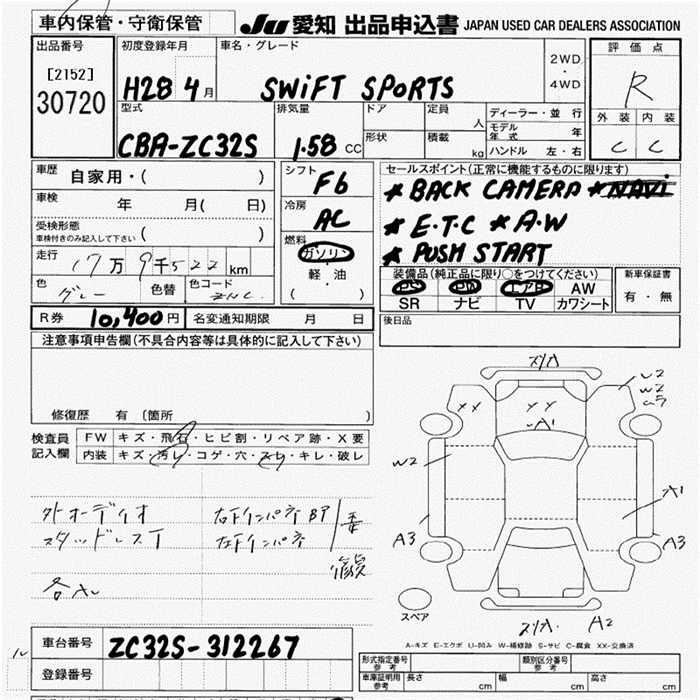 車内保管・守衛保管
JU 愛知 出品申込書 JAPAN USED CAR DEALERS ASSOCIATION
出品番号
[2152]
30720
初度登録年月
H28 4月
車名・グレード
SWiFT SPORTS
2WD
・
4WD
評価点
R
外装 内装
C C
型式
CBA-ZC32S
排気量
1.58 CC
ドア
形状
定員
人
積載
kg
ディーラー・並行
モデル年式 年
ハンドル 左・右
車歴
自家用・( )
車検
年 月( 日)
受検形態
車検付きのみ記入して下さい ( )
走行
17万9千522km
色
グレー
色替
色コード
ZNC
シフト
F6
冷房
AC
燃料
ガソリン
軽・油
( )
セールスポイント(正常に機能するものに限ります)
★ BACK CAMERA ★ NAVi
★ E.T.C ★ A.W
★ PUSH START
装備品(純正品に限り○をつけてください)
PS PW エアB AW
SR ナビ TV カワシート
新車保証書
有・無
R券 10,400円 名変通知期限 月 日
後日品
注意事項申告欄(不具合内容等は具体的に記入して下さい)
修復歴 有 〔箇所 〕
検査員
記入欄
FW キズ・飛石・ヒビ割・リペア跡・X要
内装 キズ・汚レ・コゲ・穴・スレ・キレ・破レ
外オーディオ
スタッドレスT
右下インパネ
左下インパネ
XX
YY
A1
W2
W2
A3
A1
A3
A2
スペア
A-キズ E-エクボ U-凹み W-補修跡 S-サビ C-腐食 XX-交換済
車台番号 ZC32S-312267
登録番号
形式指定番号
参考
類別区分番号
参考
車庫証明用
参考
長さ cm
幅 cm
高さ cm